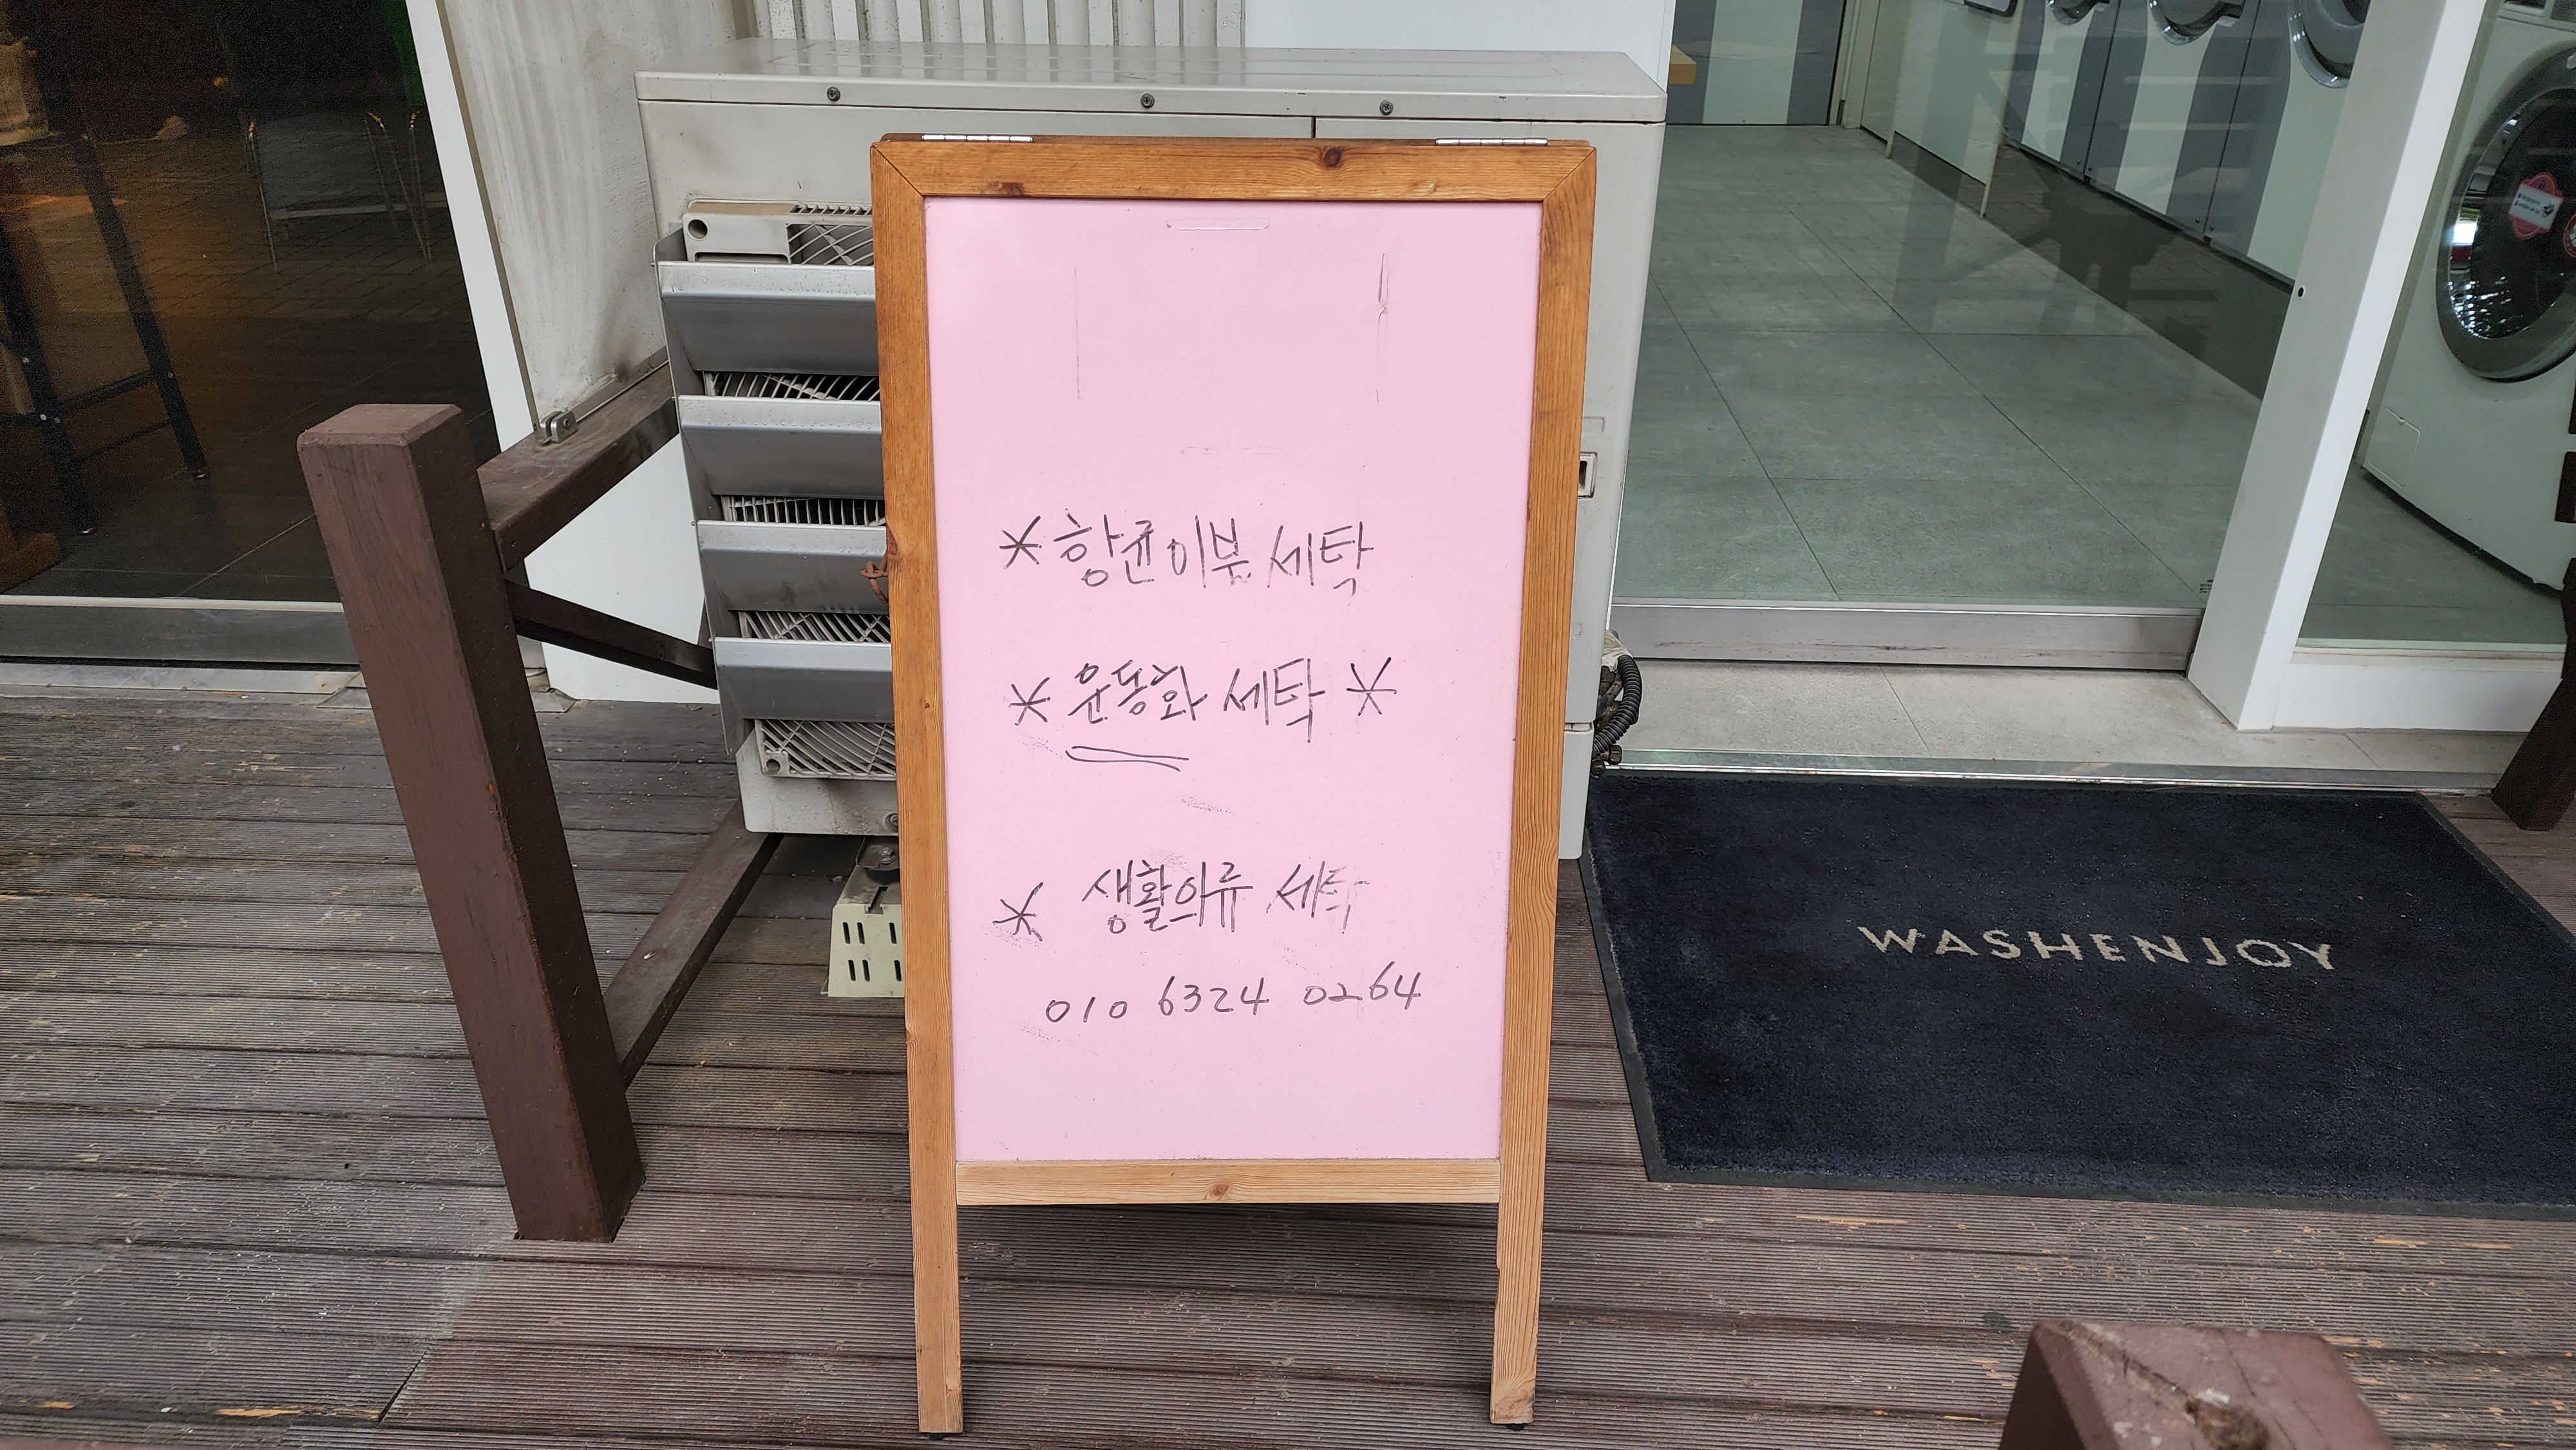 * 항균이불 세탁
* 운동화 세탁 *
* 생활의류 세탁
010 6324 0264
WASHENJOY